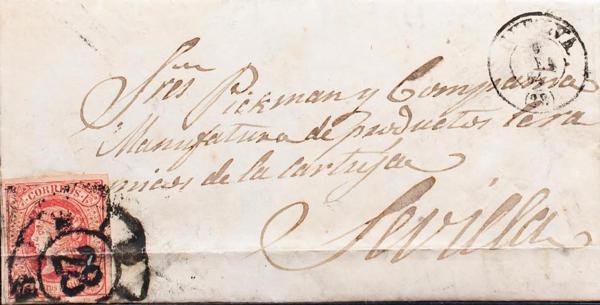 HUELVA
(28)
Sres Pickman y Compañia
Manufactura de productos cera
micos de la cartuja
Sevilla
CORREOS